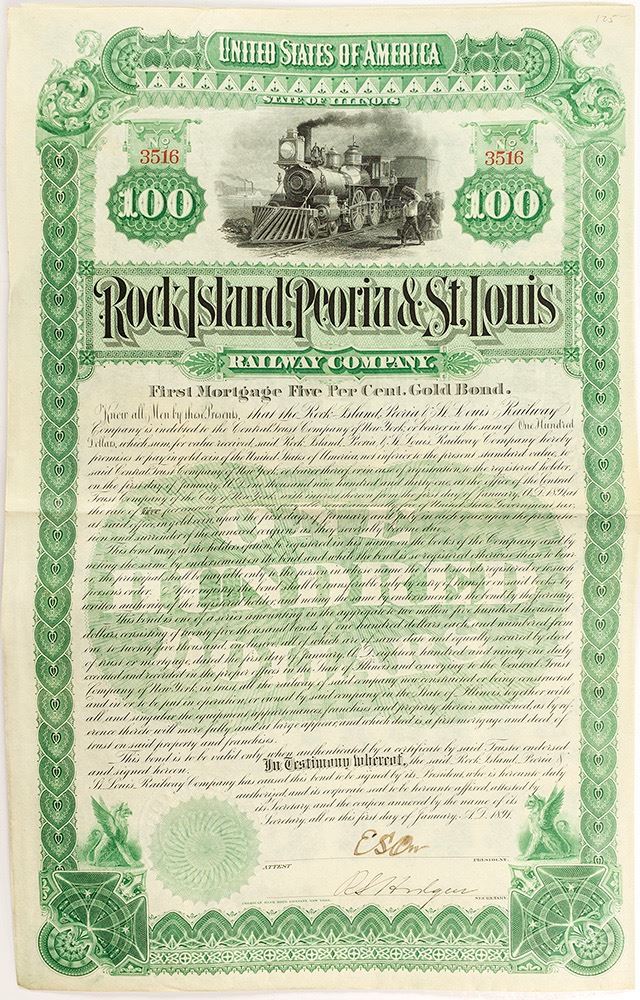 125
UNITED STATES OF AMERICA
STATE OF ILLINOIS
No 3516 No 3516
100 100
Rock Island, Peoria & St. Louis
RAILWAY COMPANY.
First Mortgage Five Per Cent. Gold Bond.
Know all Men by these Presents, that the Rock Island, Peoria & St. Louis Railway
Company is indebted to the Central Trust Company of New York, or bearer, in the sum of One Hundred
Dollars, which sum, for value received, said Rock Island, Peoria & St. Louis Railway Company hereby
promises to pay in gold coin of the United States of America, not inferior to the present standard value, to
said Central Trust Company of New York, or bearer hereof, or in case of registration, to the registered holder,
on the first day of January, A.D. one thousand nine hundred and thirty one, at the office of the Central
Trust Company in the City of New York, with interest thereon from the first day of January, A.D. 1891, at
the rate of five per annum, United States Government tax,
at said office, in gold coin upon the first days of January and July in each year, upon the presenta-
tion and surrender of the annexed coupons as they severally become due.
This bond may, at the holder's option, be registered in his name on the books of the Company, and by
written authority of the registered holder, and may in the same manner be made payable to bearer.
This bond is one of a series amounting in the aggregate to two million five hundred thousand
dollars, consisting of twenty five thousand bonds of one hundred dollars each, and numbered from
one to twenty five thousand, the payment of which and the same duly is secured by deed
of trust or mortgage, dated the first day of January, A.D. eighteen hundred and ninety-one, duly
executed and recorded in the proper offices in the State of Illinois, and conveying to the Central Trust
Company of New York, in trust, all the railway of said company now constructed or being constructed
and in or to be put in operation, or owned by said company in the State of Illinois, together with
all and singular the equipment, appurtenances, franchises and property therein mentioned, as by ref-
erence thereto will more fully and at large appear, and which deed is a first mortgage and deed of
trust on said property and franchises.
This bond is to be valid only when authenticated by a certificate by said Trustee endorsed
and signed hereon.
In Testimony whereof, the said Rock Island, Peoria &
St. Louis Railway Company has caused this bond to be signed by its President, who is hereunto duly
authorized, and its corporate seal to be hereunto affixed, attested by
its Secretary, and the coupon annexed by the name of its
Secretary, all on this first day of January, A.D. 1891.
PRESIDENT.
ATTEST
SECRETARY.
AMERICAN BANK NOTE COMPANY, NEW YORK.
ONE
HUNDRED
DOLLARS